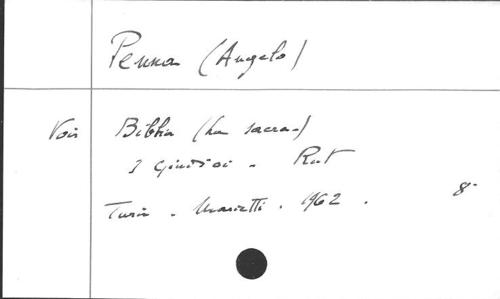 Penna (Angelo)
Voir Bibbia (La sacra)
I Giudici - Rut
Turin - Marietti - 1962. 8°